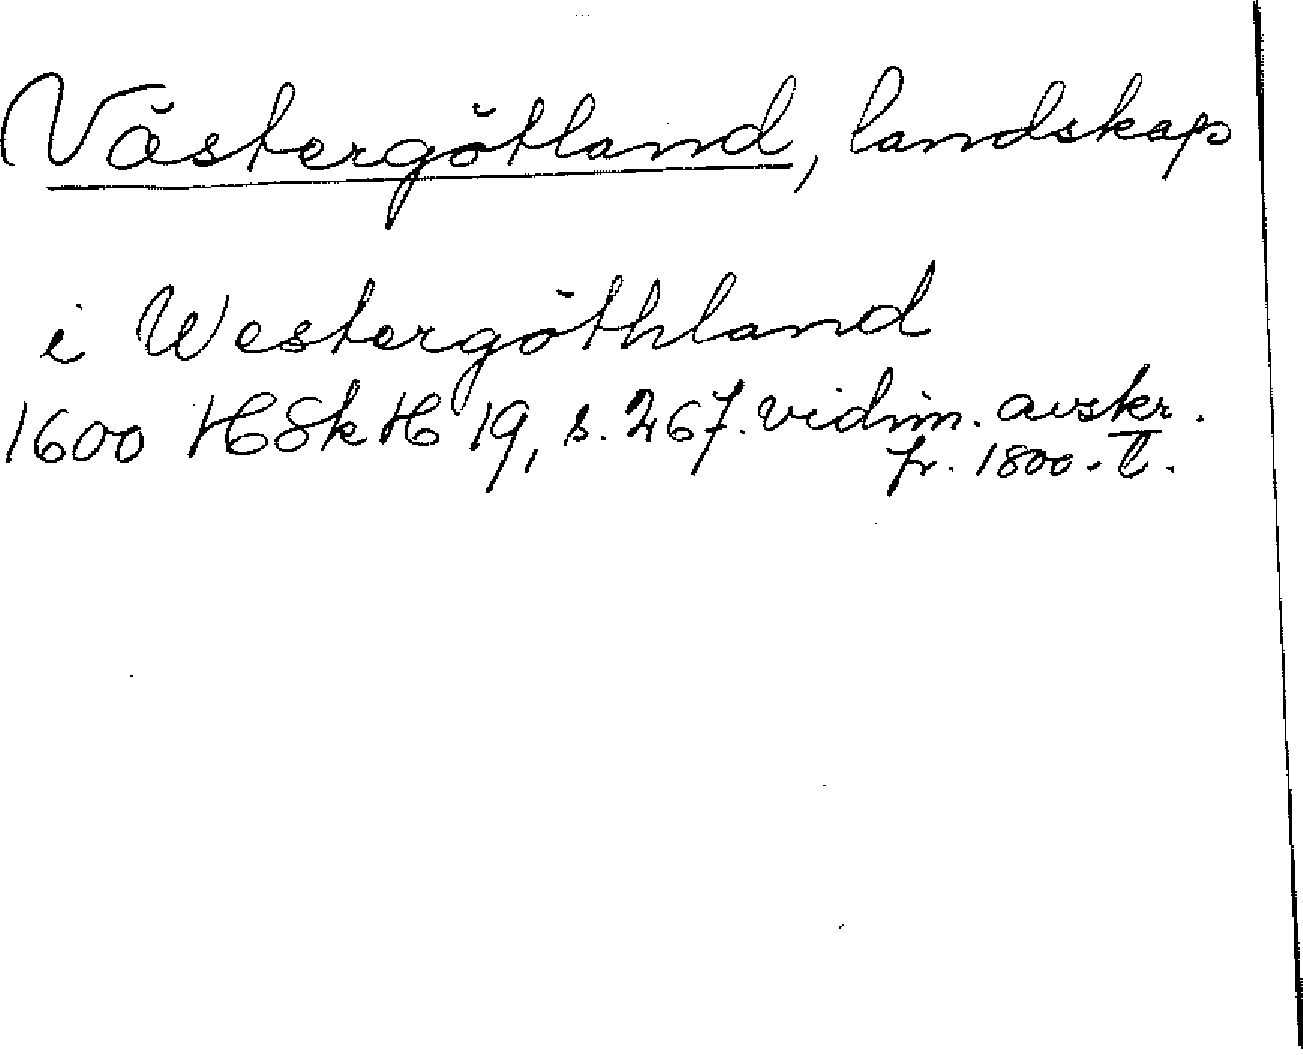 Västergötland, landskap
i Westergöthland
1600 HSkH 19, s. 267. vidim. avskr.
fr. 1800-t.